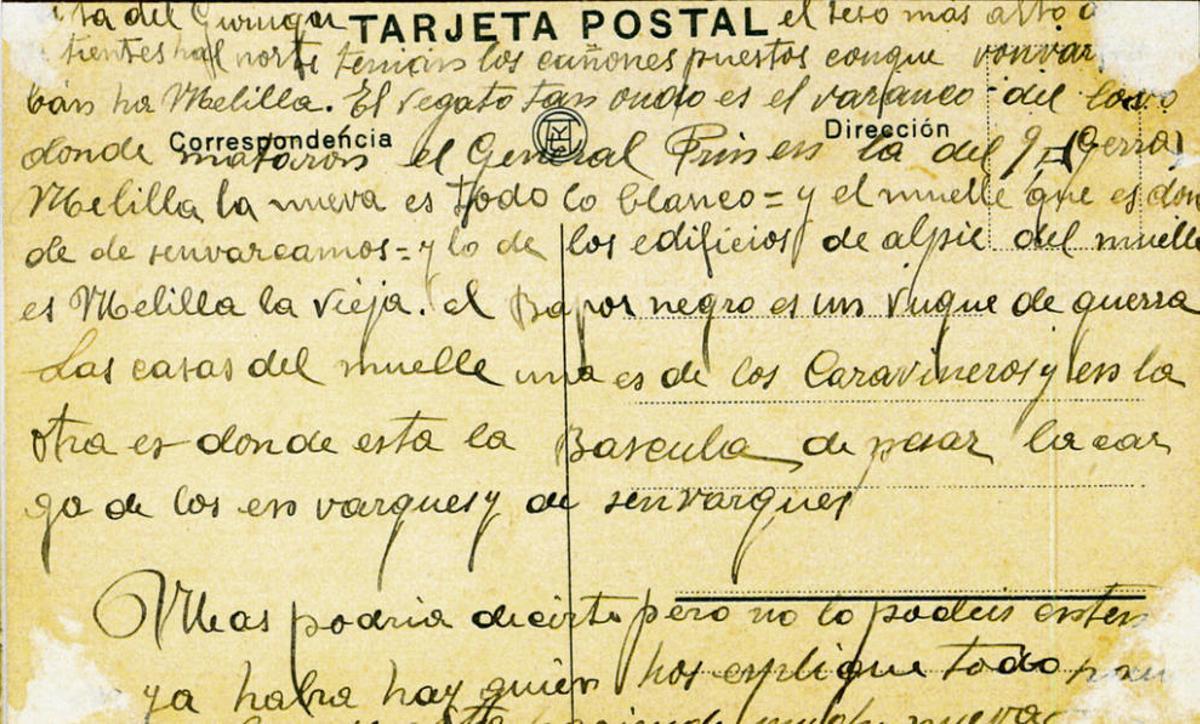 del Gurugu TARJETA POSTAL el teso más alto
tientes hal norte tenian los cañones puestos conque
bán ha Melilla. El regato tan ondo es el varanco del lovo
Correspondencia Dirección
donde mataron el General Prin en la del 9 (Gerra)
Melilla la nueva es todo lo blanco = y el muelle que es don
de de senvarcamos = y lo de los edificios de alpie del muelle
es Melilla la vieja. el Bapor negro es un vuque de guerra
Las casas del muelle una es de los Caravineros y en la
otra es donde esta la Bascula de pesar la car
ga de los en varques y de senvarques
Meas podria decirte pero no lo podeis enten
ya habra hay quien hos esplique todo